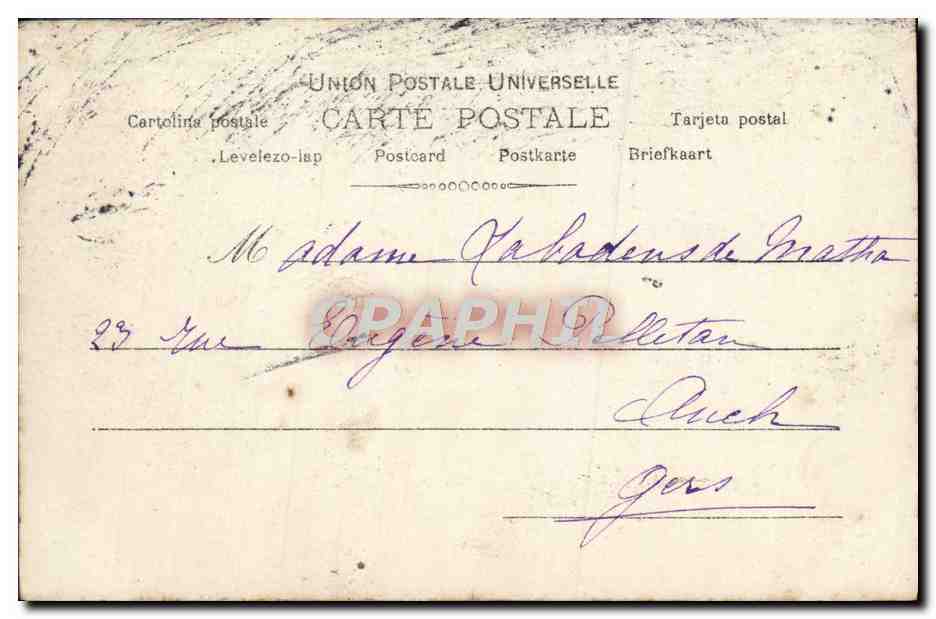 UNION POSTALE UNIVERSELLE
Cartolina postale CARTE POSTALE Tarjeta postal
Levelezo-lap Postcard Postkarte Briefkaart
Madame Labadens de Matha
CPAPHIL
23 rue Eugène Pelletan
Auch
Gers